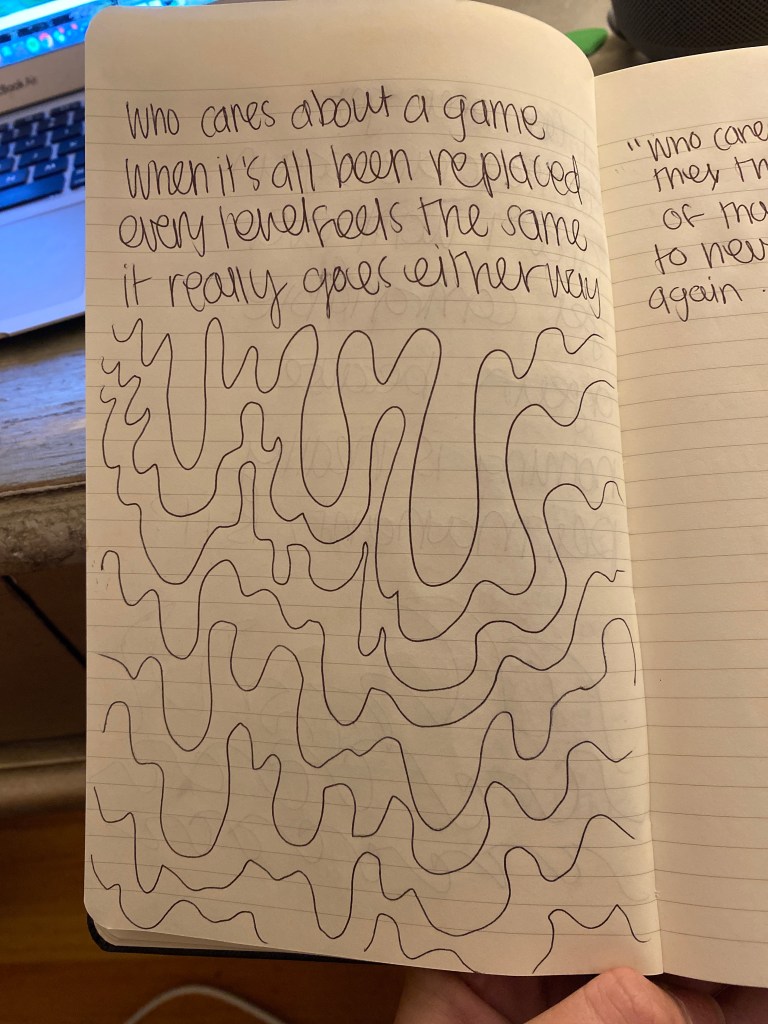 who cares about a game
when it's all been replaced
every level feels the same
it really goes either way
"who care
they th
of ma
to new
again.
Book Air